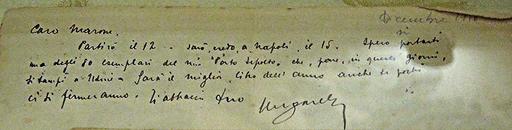 Dicembre
Caro Marone,
Partirò il 12 - sarò, credo, a Napoli, il 15. Spero portarti
ma degli 80 esemplari del mio "Porto Sepolto", che, pare, in questi giorni,
si stampi a Udine - Sarà il miglior libro dell'anno anche se pochi
ci si fermeranno. Ti abbraccio tuo
Ungaretti